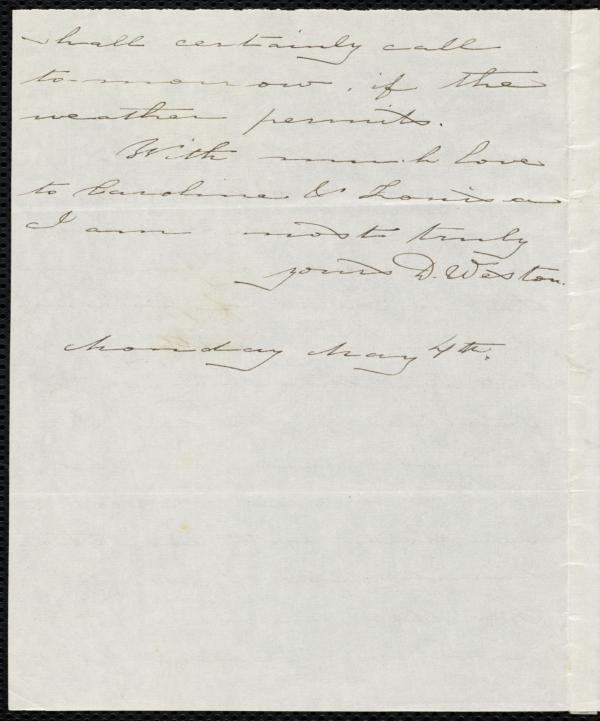 shall certainly call
to-morrow, if the
weather permits.
With much love
to Caroline & Louisa
I am most truly
yours D. Weston.
Monday May 4th.